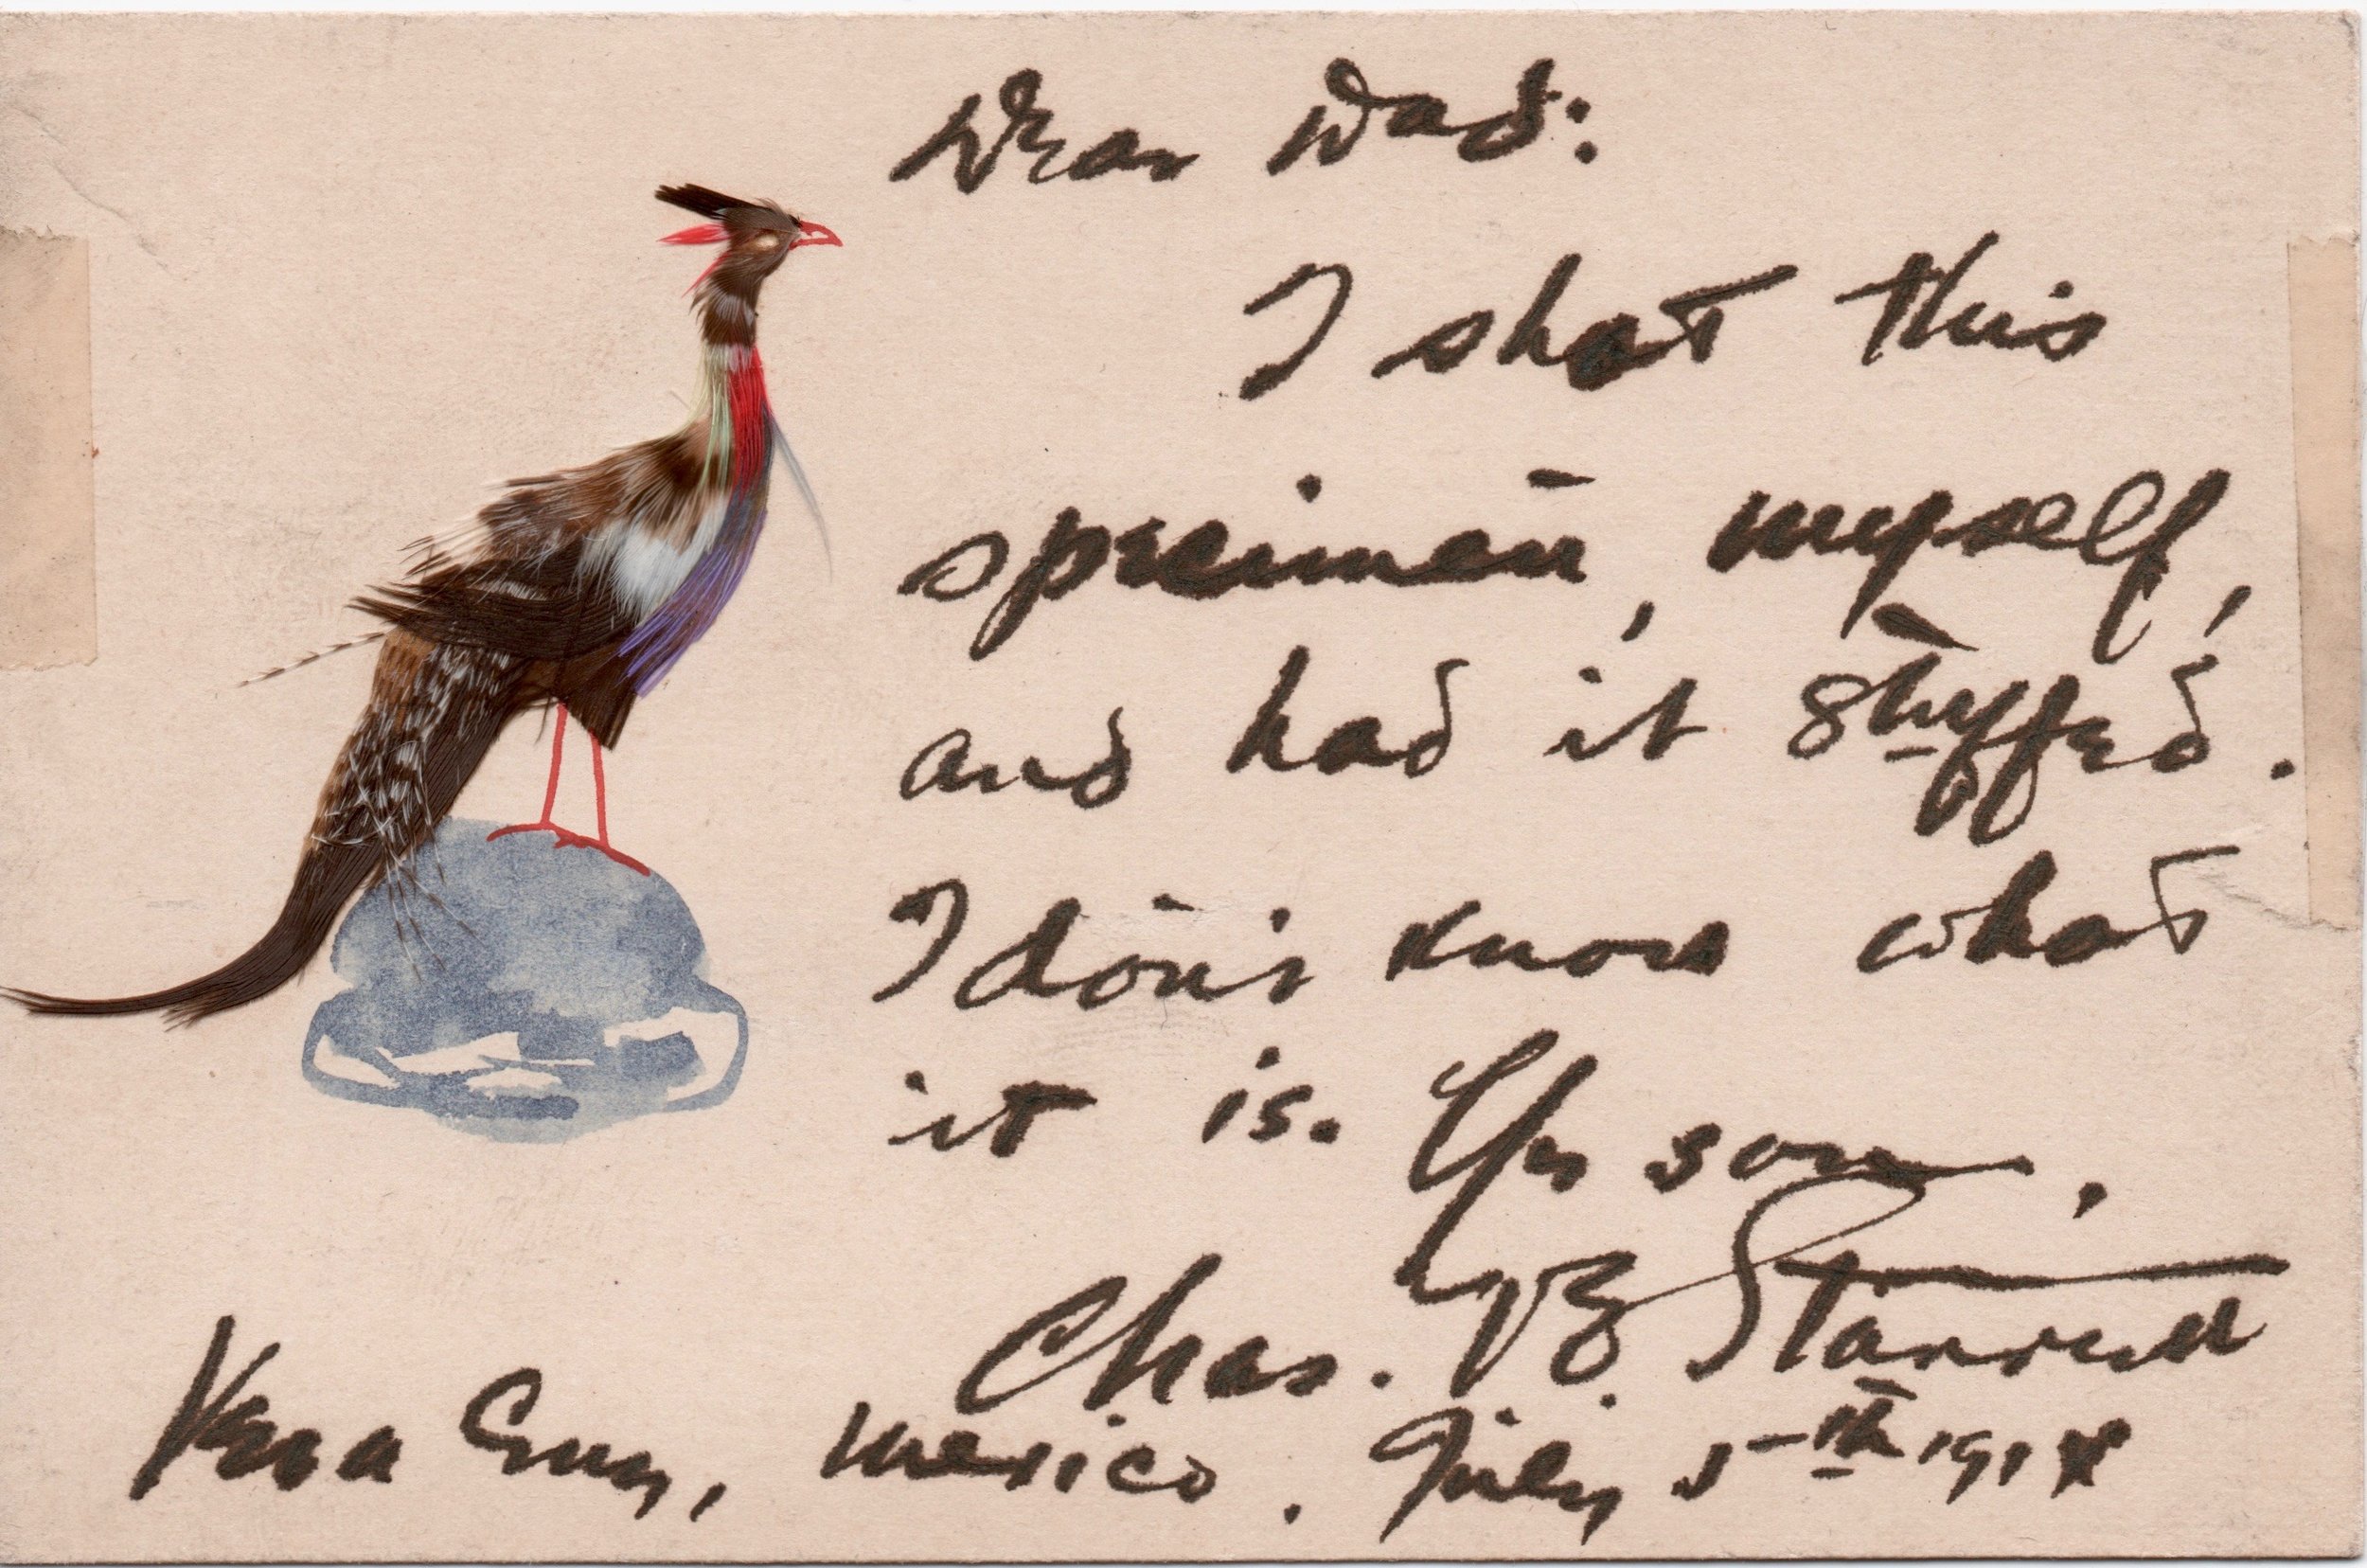 Dear Dad:
I shot this
specimen, myself,
and had it stuffed.
I don't know what
it is. Yr son,
Chas. B. Starrett
Vera Cruz, Mexico. July 5th 1914